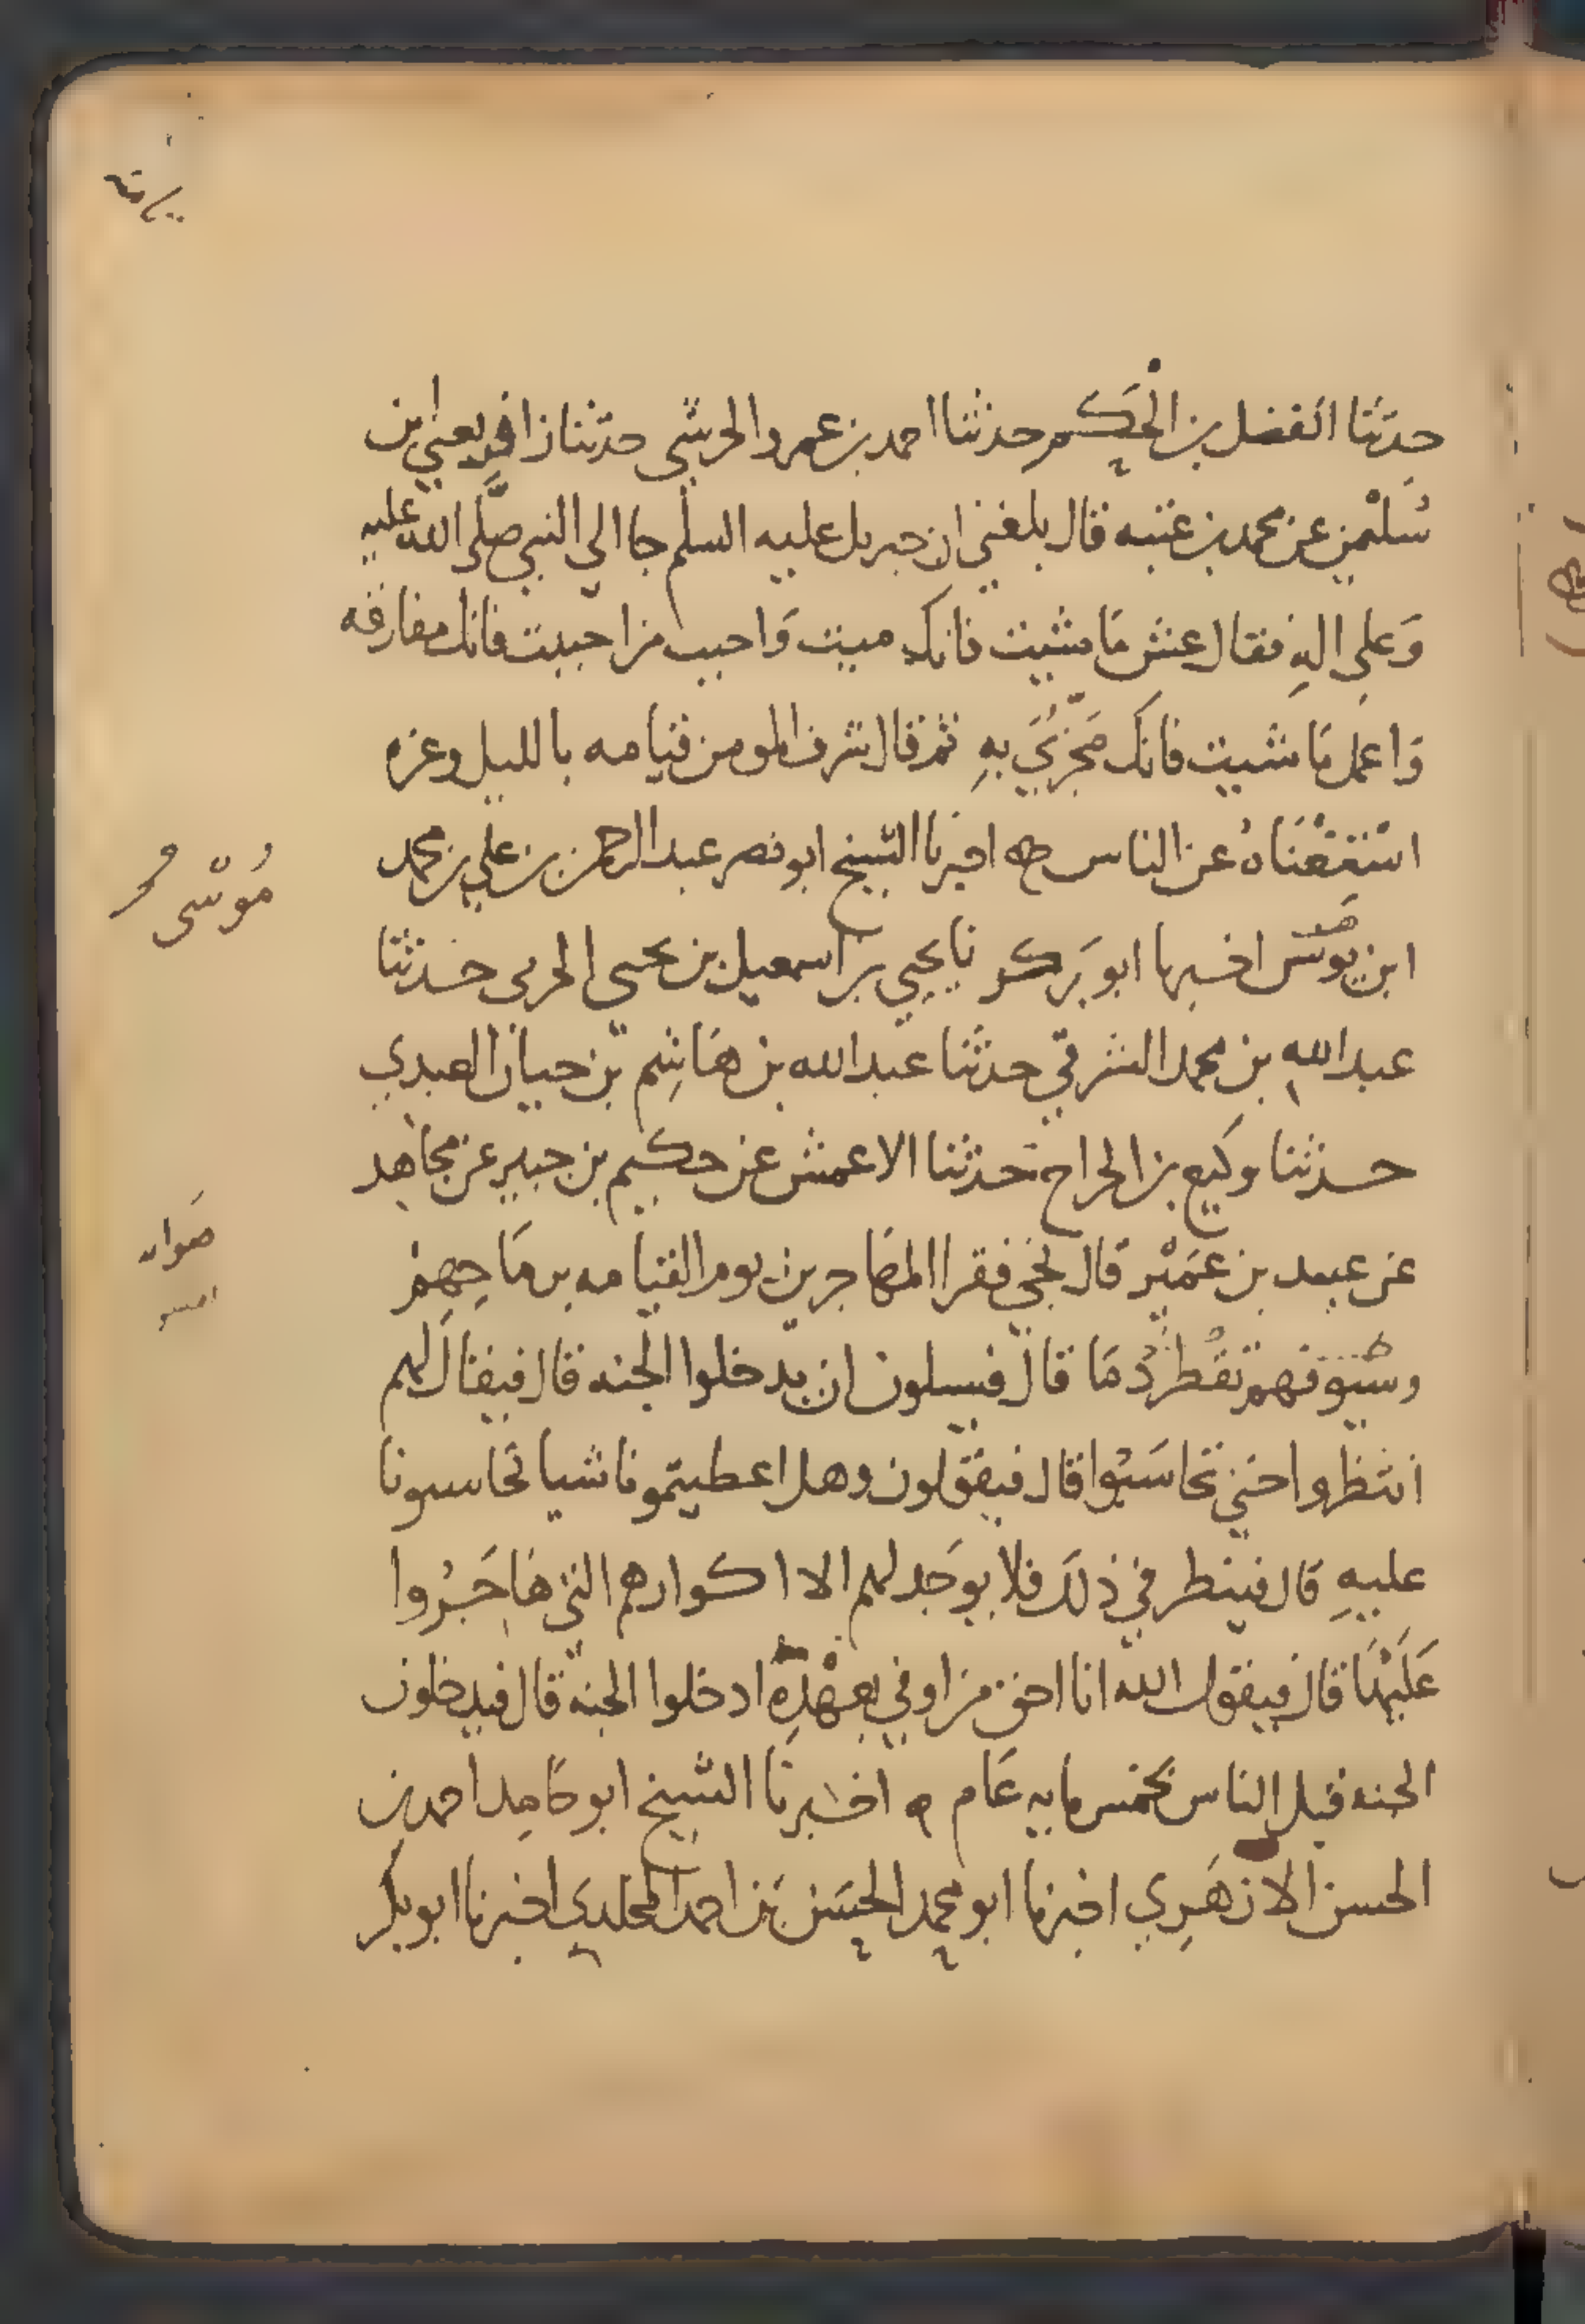 حدثنا الفضل بن الحكم حدثنا احمد بن عمرو الحرشي حدثنا زافر يعني ابن
سليمن عن محمد بن عتبه قال بلغني ان جبريل عليه السلم جا الى النبي صلى الله عليه
وعلى اله فقال عش ما شيت فانك ميت واحبب من احببت فانك مفارقه
واعمل ما شيت فانك مجزي به ثم قال شرف المومن قيامه بالليل وعزه
استغناه عن الناس اخبرنا الشيخ ابو نصر عبد الرحمن بن علي بن محمد
ابن يونس اخبرنا ابو زكر نا يحيى بن اسمعيل بن يحيى الحربي حدثنا
عبد الله بن محمد الشرقي حدثنا عبد الله بن هاشم بن حيان العبدي
حدثنا وكيع بن الجراح حدثنا الاعمش عن حكيم بن جبير عن مجاهد
عن عبيد بن عمير قال يجي فقرا المهاجرين يوم القيامه
وسيوفهم تقطر دما قال فيسلون ان يدخلوا الجنه قال فيقال لهم
انتظروا حتى تحاسبوا قال فيقولون وهل اعطيتمونا شيا تحاسبونا
عليه قال فينظر في ذلك فلا يوجد لهم الا اكوارهم التي هاجروا
عليها قال فيقول الله انا احق من اوفى بعهده ادخلوا الجنه قال فيدخلون
الجنه قبل الناس بخمس مايه عام ه اخبرنا الشيخ ابو حامد احمد بن
الحسن الازهري اخبرنا ابو محمد الحسن بن احمد المخلدي اخبرنا ابو بكر
موسى
صوابه